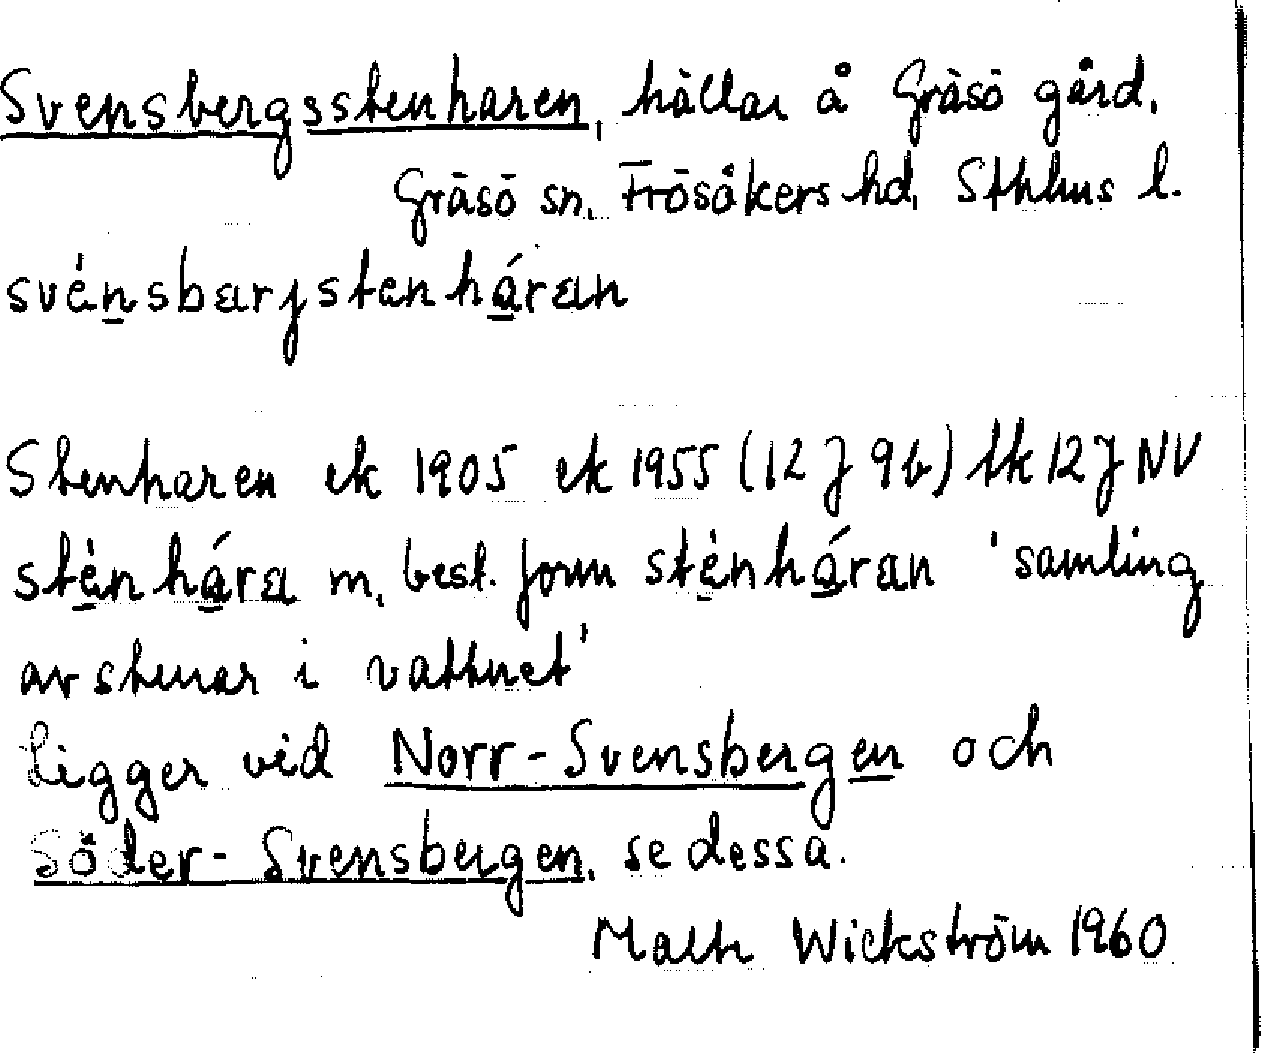 Svensbergsstenharen, hällar å Gräsö gård,
Gräsö sn, Frösåkers hd, Sthlms l.
svénsbærjstenháran
Stenharen ek 1905 ek 1955 (12 J 9b) tk 12J NV
sténhára m, best. form sténháran 'samling
av stenar i vattnet'
Ligger vid Norr-Svensbergen och
Söder-Svensbergen, se dessa.
Math Wickström 1960